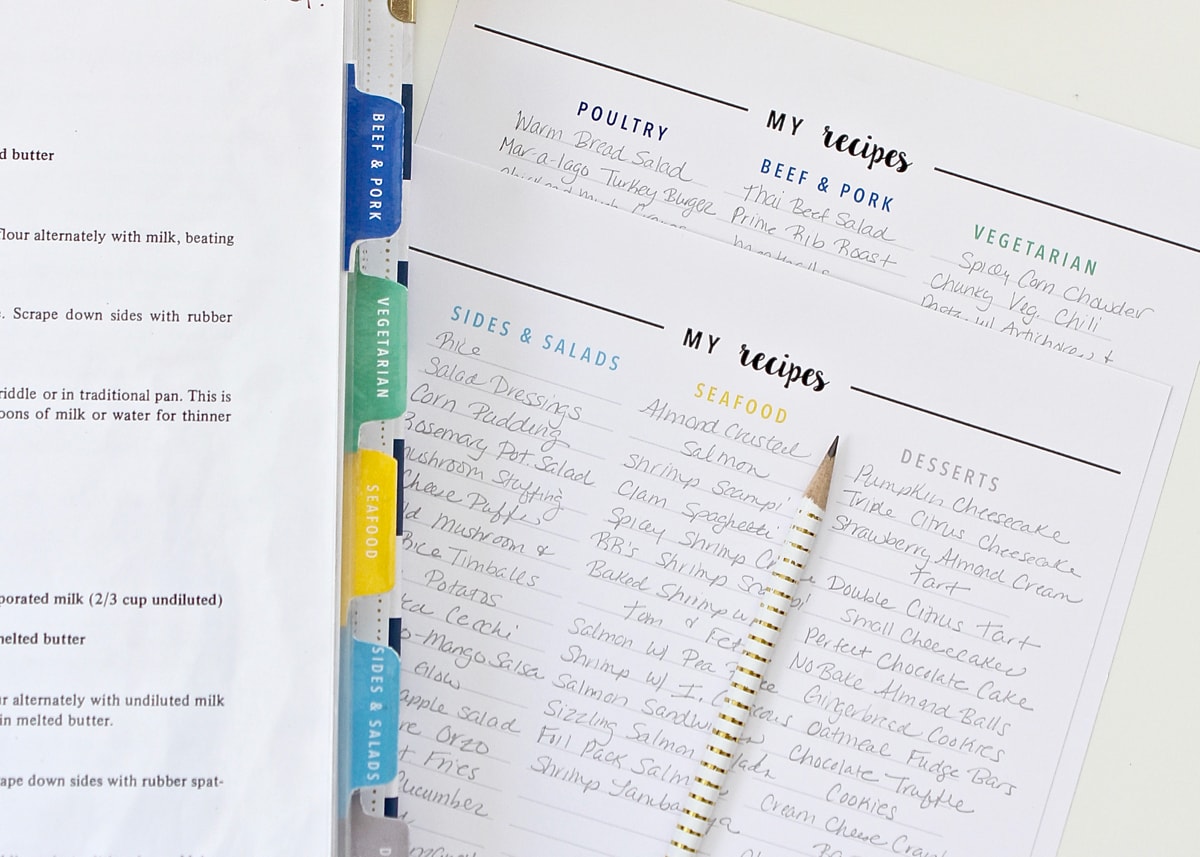 d butter
flour alternately with milk, beating
. Scrape down sides with rubber
riddle or in traditional pan. This is
oons of milk or water for thinner
porated milk (2/3 cup undiluted)
melted butter
ur alternately with undiluted milk
in melted butter.
ape down sides with rubber spat-
BEEF & PORK
VEGETARIAN
SEAFOOD
SIDES & SALADS
D
MY recipes
POULTRY
Warm Bread Salad
Mar-a-lago Turkey Burger
BEEF & PORK
Thai Beef Salad
Prime Rib Roast
VEGETARIAN
Spicy Corn Chowder
Chunky Veg. Chili
w/ Artichokes +
MY recipes
SIDES & SALADS
Rice
Salad Dressings
Corn Pudding
Rosemary Pot. Salad
Mushroom Stuffing
Cheese Puffs
ld Mushroom &
Rice Timbales
Potatos
Cecchi
o-Mango Salsa
Glow
apple Salad
re Orzo
t Fries
Cucumber
SEAFOOD
Almond Crusted
Salmon
Shrimp Scampi
Clam Spaghetti
Spicy Shrimp
BB's Shrimp
Baked Shrimp w
Tom & Fet
Salmon w/ Pea
Shrimp w/ I.
Salmon Sandw
Sizzling Salmon
Foil Pack Salm
Shrimp Jamba ya
DESSERTS
Pumpkin Cheesecake
Triple Citrus Cheesecake
Strawberry Almond Cream
Tart
Double Citrus Tart
Small Cheesecakes
Perfect Chocolate Cake
No Bake Almond Balls
Gingerbread Cookies
Oatmeal Fudge Bars
Chocolate Truffle
Cookies
Cream Cheese Cran